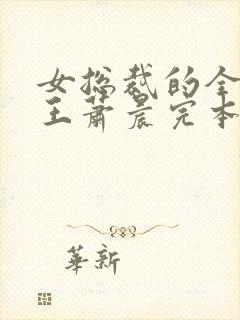 女总裁的全
王萧晨完本
華新